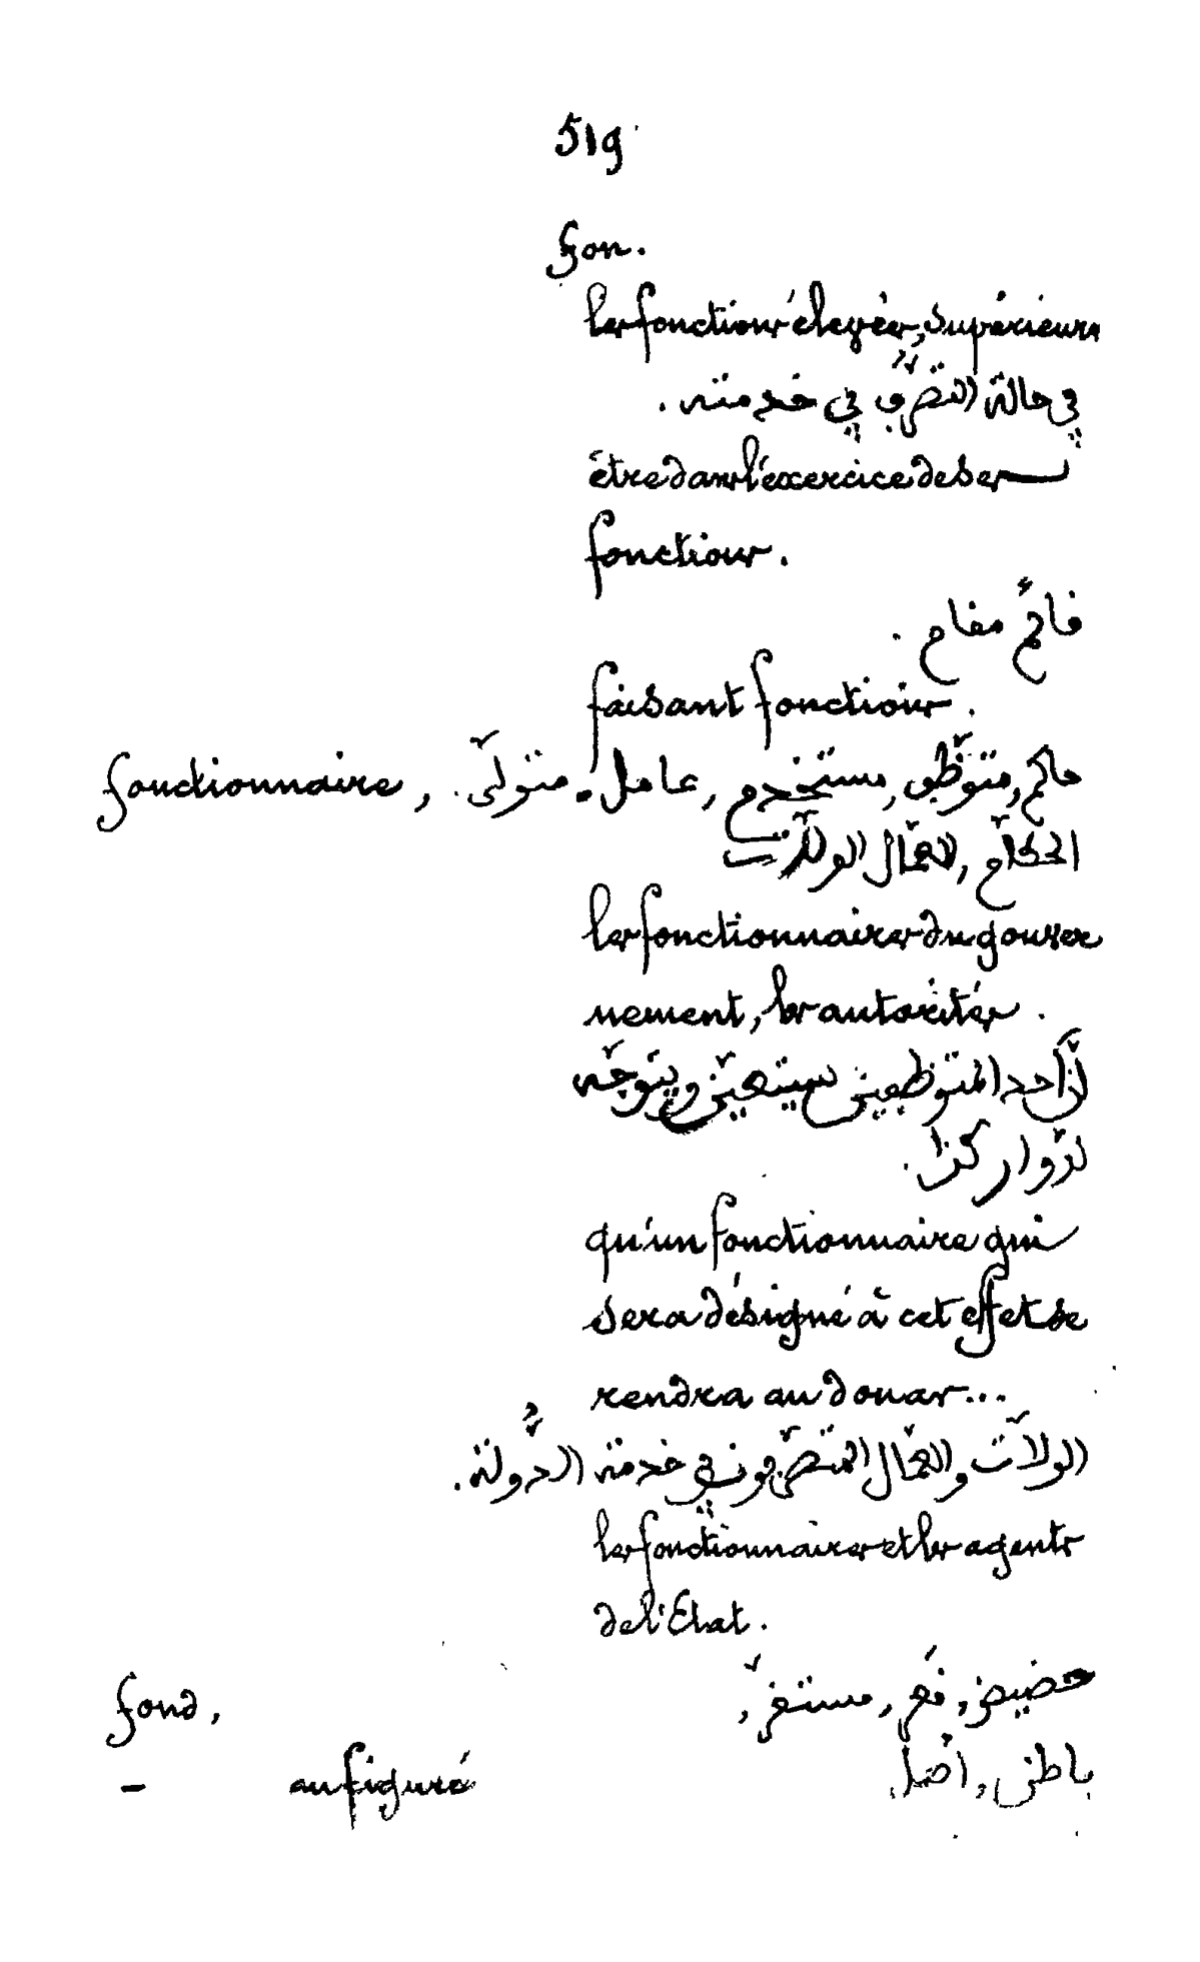 519
fon.
les fonctions élevées, supérieures
في حالة التصرّف في خدمته.
être dans l'exercice de ses
fonctions.
قائم مقام.
faisant fonctions.
fonctionnaire, حاكم, متوظّف, مستخدم, عامل. متولّى.
الحكّام, العمّال الولات
les fonctionnaires du gouver
nement, les autorités.
لأنّ أحد المتوظفين سيتعيّن ويتوجّه
لدوّار كذا.
qu'un fonctionnaire qui
sera désigné à cet effet se
rendra au douar...
الولات والعمّال المتصرّفون في خدمة الدّولة.
les fonctionnaires et les agents
de l'Etat.
fond, حضيض, قعر, مستقرّ,
- au figuré باطن, اصل,